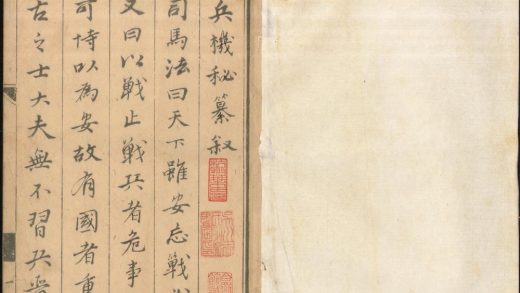 兵機秘纂叙
司馬法曰天下雖安忘戰
又曰以戰止戰兵者危事
可恃以為安故有國者重
古之士大夫無不習兵